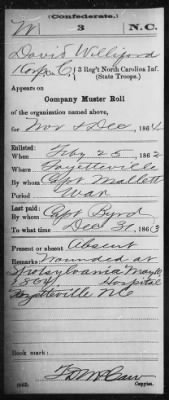 (Confederate.)
W 3 N.C.
David Williford
Corp. C, 3 Reg't North Carolina Inf.
(State Troops.)
Appears on
Company Muster Roll
of the organization named above,
for Nov & Dec, 1864
Enlisted:
When Feby 25, 1862
Where Fayetteville
By whom Capt Mallett
Period War
Last paid:
By whom Capt Byrd
To what time Dec 31, 1863
Present or absent Absent
Remarks: Wounded at
Spotsylvania May
1864. Hospital
Fayetteville NC
Book mark:
Copyist.